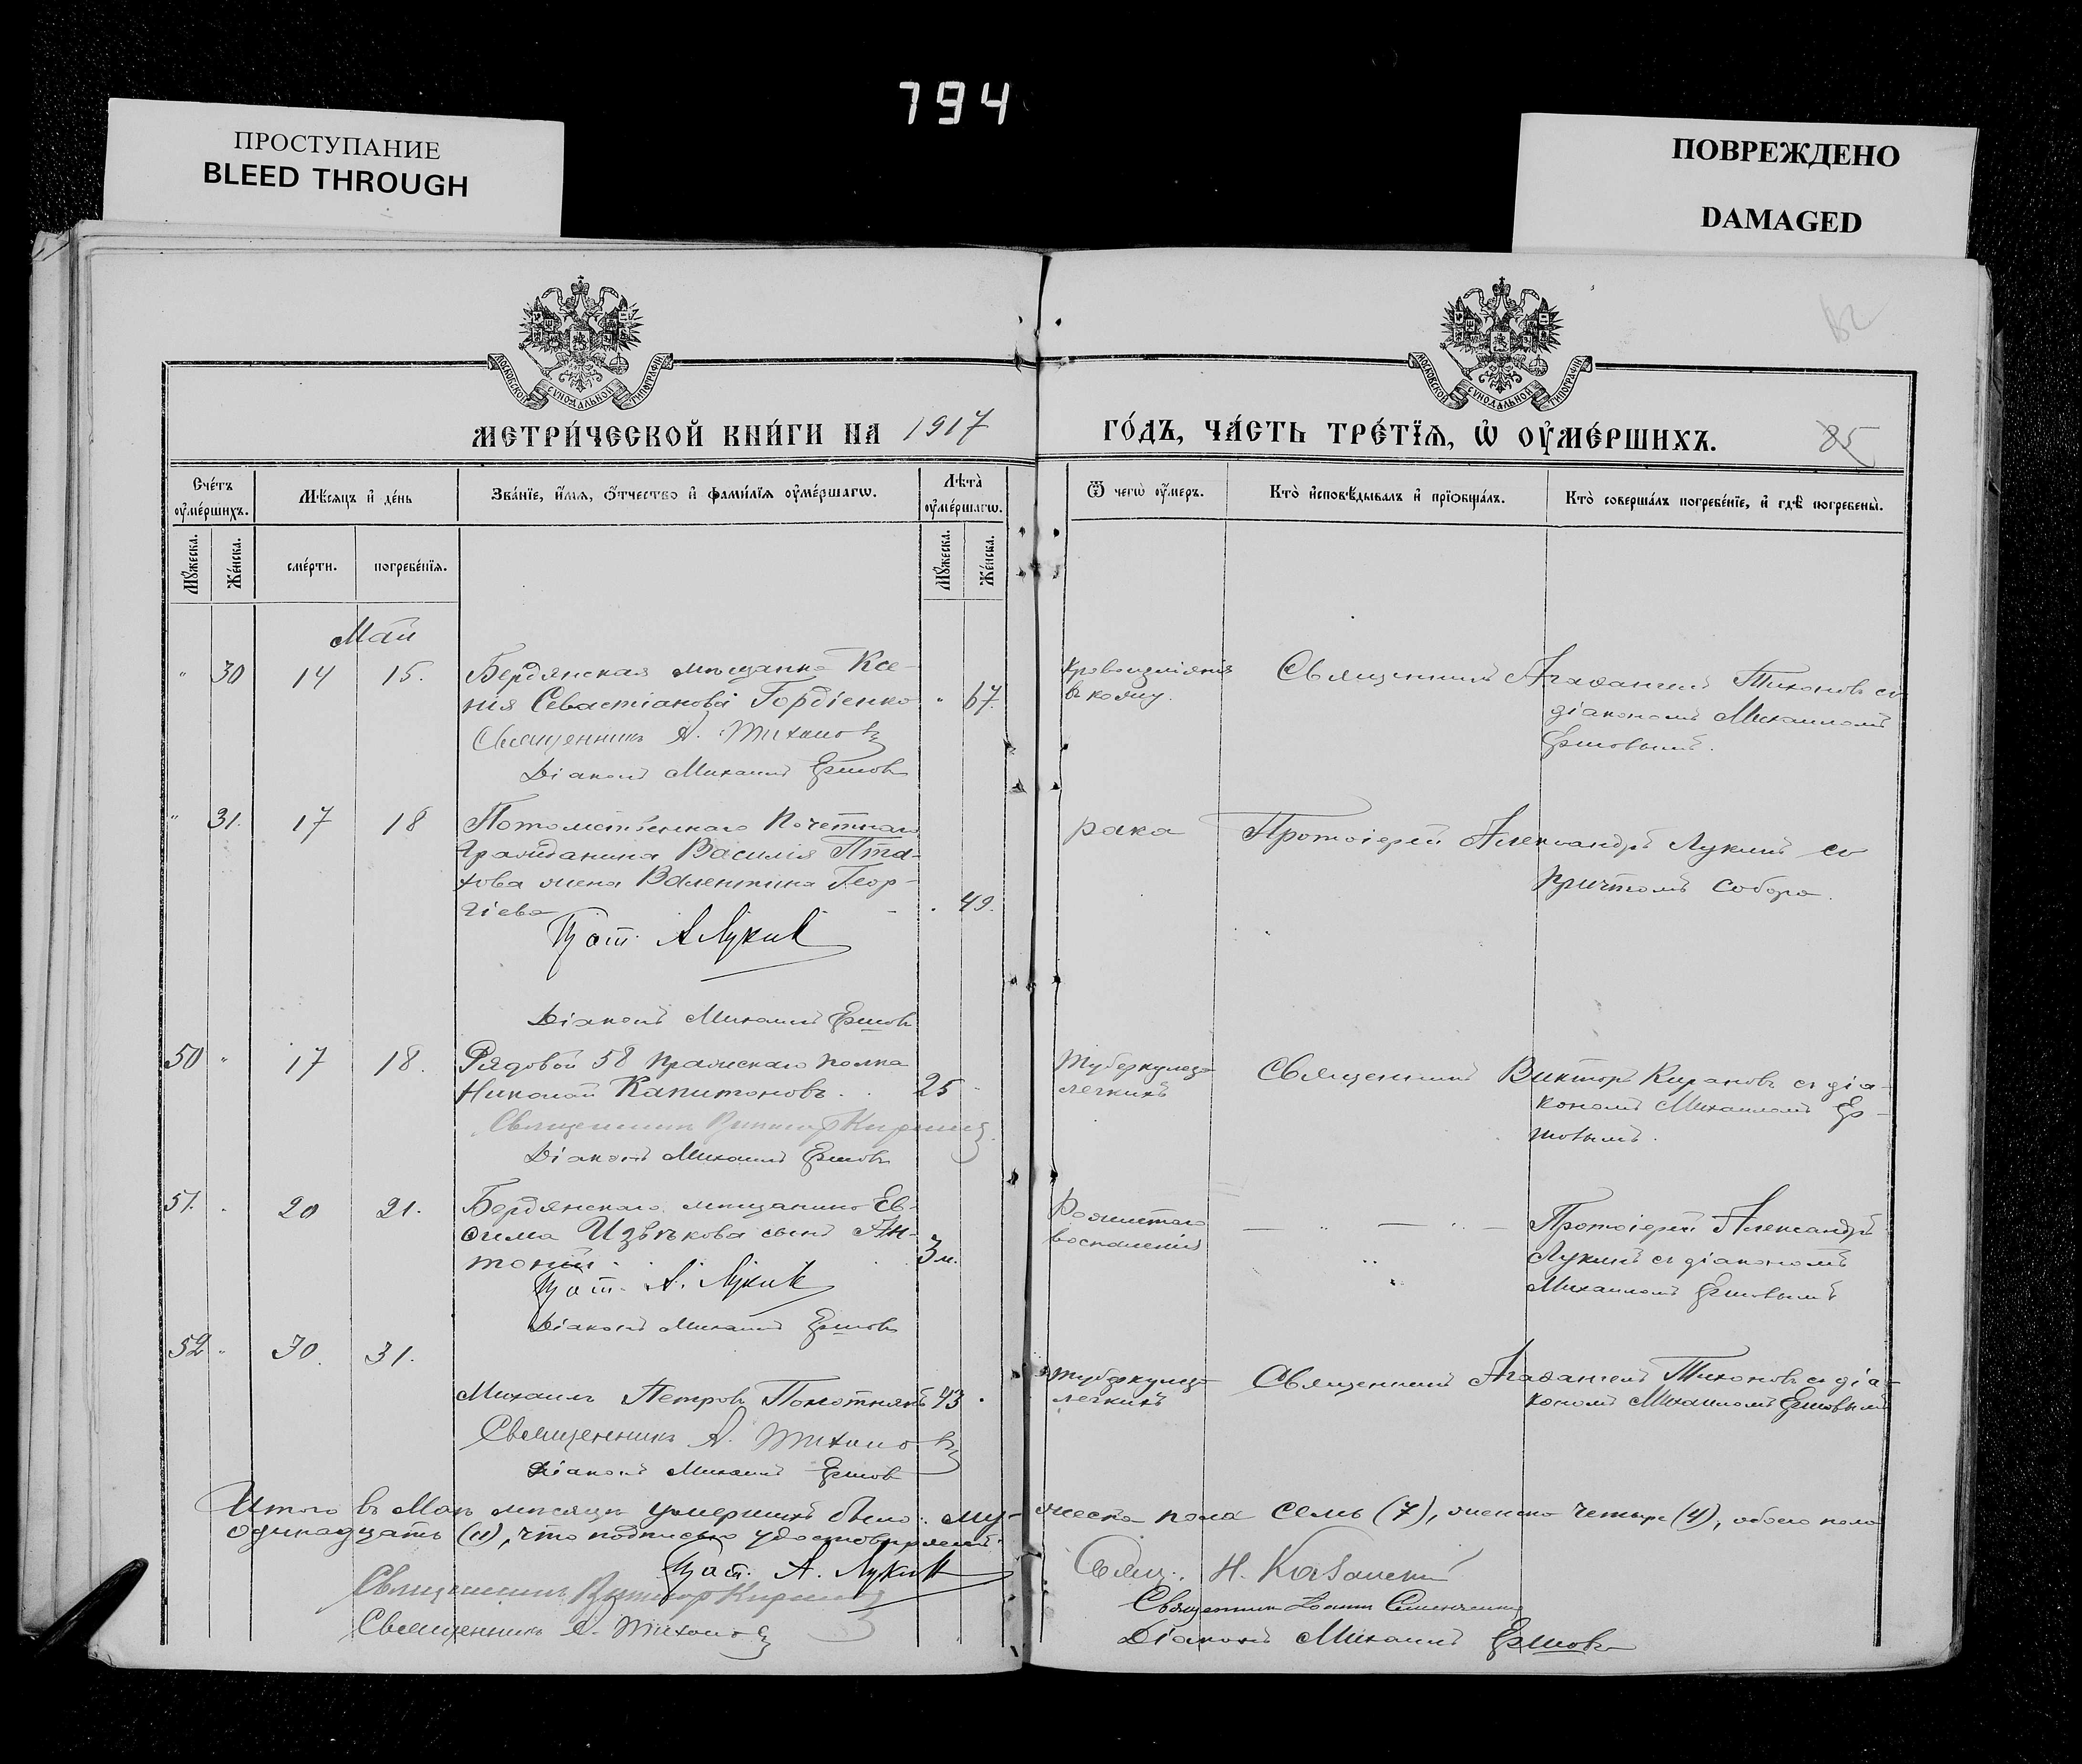 794
ПРОСТУПАНИЕ
BLEED THROUGH
ПОВРЕЖДЕНО
DAMAGED
МОСКОВСКОЙ СѴНОДАЛЬНОЙ ТИПОГРАФІИ
МОСКОВСКОЙ СѴНОДАЛЬНОЙ ТИПОГРАФІИ
МЕТРИ́ЧЕСКОЙ КНИ́ГИ НА 1917
ГО́ДЪ, ЧА́СТЬ ТРЕ́ТЇЯ, Ѡ҆ ОУ҆МЕ́РШИХЪ.
85
Сче́тъ оу҆ме́ршихъ.
Мѣ́сяцъ и҆ де́нь
Зва́нїе, и҆́мя, о҆́тчество и҆ фами́лїя оу҆ме́ршагѡ.
Лѣта̀ оу҆ме́ршагѡ.
Ѿ чегѡ̀ оу҆́меръ.
Кто̀ и҆сповѣ́дывалъ и҆ прїѡбща́лъ.
Кто̀ соверша́лъ погребе́нїе, и҆ гдѣ̀ погребены̀.
Мꙋ́жеска.
Же́нска.
сме́рти.
погребе́нїя.
Мꙋ́жеска.
Же́нска.
Май
" 30 14 15. Бердянская мѣщанка Ксе-
нія Севастіанова Гордіенко " 67.
Священникъ А. Тихоновъ
Діаконъ Михаилъ Ершовъ
Кровоизліянія
въ кожу.
Священникъ Агаѳангелъ Тихоновъ съ
діакономъ Михаиломъ
Ершовымъ.
" 31. 17 18 Потомственнаго Почетнаго
Гражданина Василія Пта-
хова жена Валентина Геор-
гіева 49.
Прот. А Лукинъ
Діаконъ Михаилъ Ершовъ
рака
Протоіерей Александръ Лукинъ со
причтомъ собора.
50 " 17 18. Рядовой 58 Пражскаго полка
Николай Капитоновъ. 25
Священникъ Викторъ Кирановъ
Діаконъ Михаилъ Ершовъ
Туберкулеза
легкихъ
Священникъ Викторъ Кирановъ съ діа-
кономъ Михаиломъ Ер-
шовымъ.
51. 20 21. Бердянскаго мѣщанина Ев-
ѳима Извѣкова сынъ Ан-
тоній. 3 м.
Прот. А. Лукинъ
Діаконъ Михаилъ Ершовъ
Рожистаго
воспаленія
Протоіерей Александръ
Лукинъ съ діакономъ
Михаиломъ Ершовымъ
52 " 30. 31.
Михаилъ Петровъ Полотнянъ 43
Священникъ А. Тихоновъ
Діаконъ Михаилъ Ершовъ
Туберкулеза
легкихъ
Священникъ Агаѳангелъ Тихоновъ съ діа-
кономъ Михаиломъ Ершовымъ
Итого въ Маѣ мѣсяцѣ умершихъ было: му-жеска пола семь (7), женска четыре (4), обоего пола
одинадцать (11), что подписью удостовѣряемъ:
Прот. А. Лукинъ
Священникъ Викторъ Кирановъ
Священникъ А. Тихоновъ
Свящ. Н. Казанскій
Священникъ Іоаннъ
Діаконъ Михаилъ Ершовъ